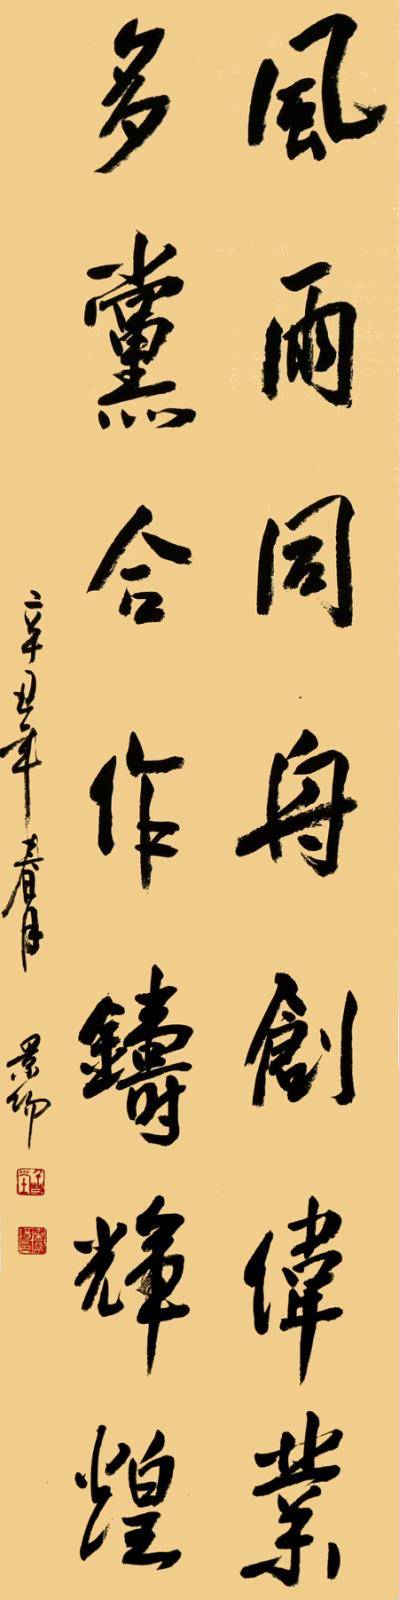 風雨同舟創偉業
多黨合作鑄輝煌
辛丑年春月